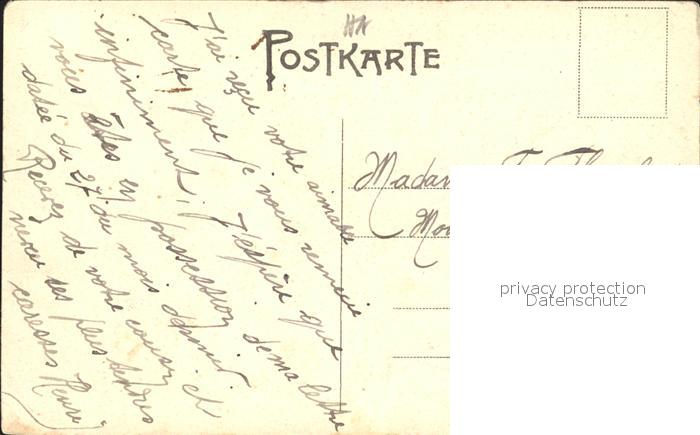 HA
POSTKARTE
J'ai reçu votre aimable
carte que je vous remercie
infiniment, j'espère que
vous êtes en possession de ma lettre
datée du 27 du mois dernier
Recevez de votre cousin et
neveu ses plus tendres
caresses Henri
Madam
Mo
privacy protection
Datenschutz